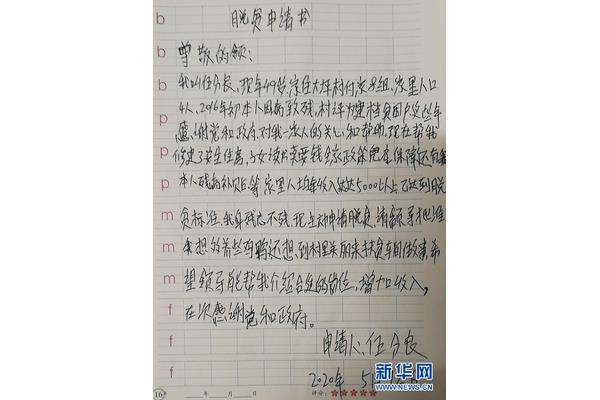 b
脱贫申请书
b
尊敬的领:
b
我叫伍分良,现年49岁,家住大坪村付家8组,家里人口
4人,2016年初本人因病致残,村评为建档贫困户这些年
p
感谢党和政府对我一家人的关心和帮助,现在帮我
p
修建了安全住房,子女读书
p
本人残病补贴等家里人均年收入达5000以上已达到脱
m
贫标准,我身残志不残,现主动申请脱贫,请领导批准
m
想的养些鸡鸭还想到村里来的扶贫车间做事,希
m
望领导能帮我介绍合适的岗位,增加收入,
f
在次感谢党和政府。
f
申请人:伍分良
f
2020年 5月
16 年 月 日 评分:★★★★★
新华网
WWW.NEWS.CN